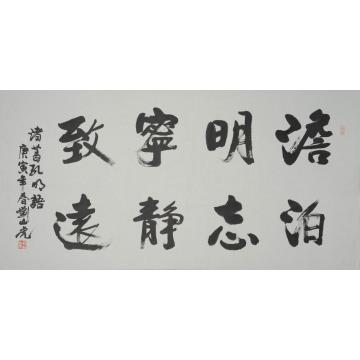 澹泊
明志
寧静
致遠
诸葛孔明語
庚寅年春劉山虎